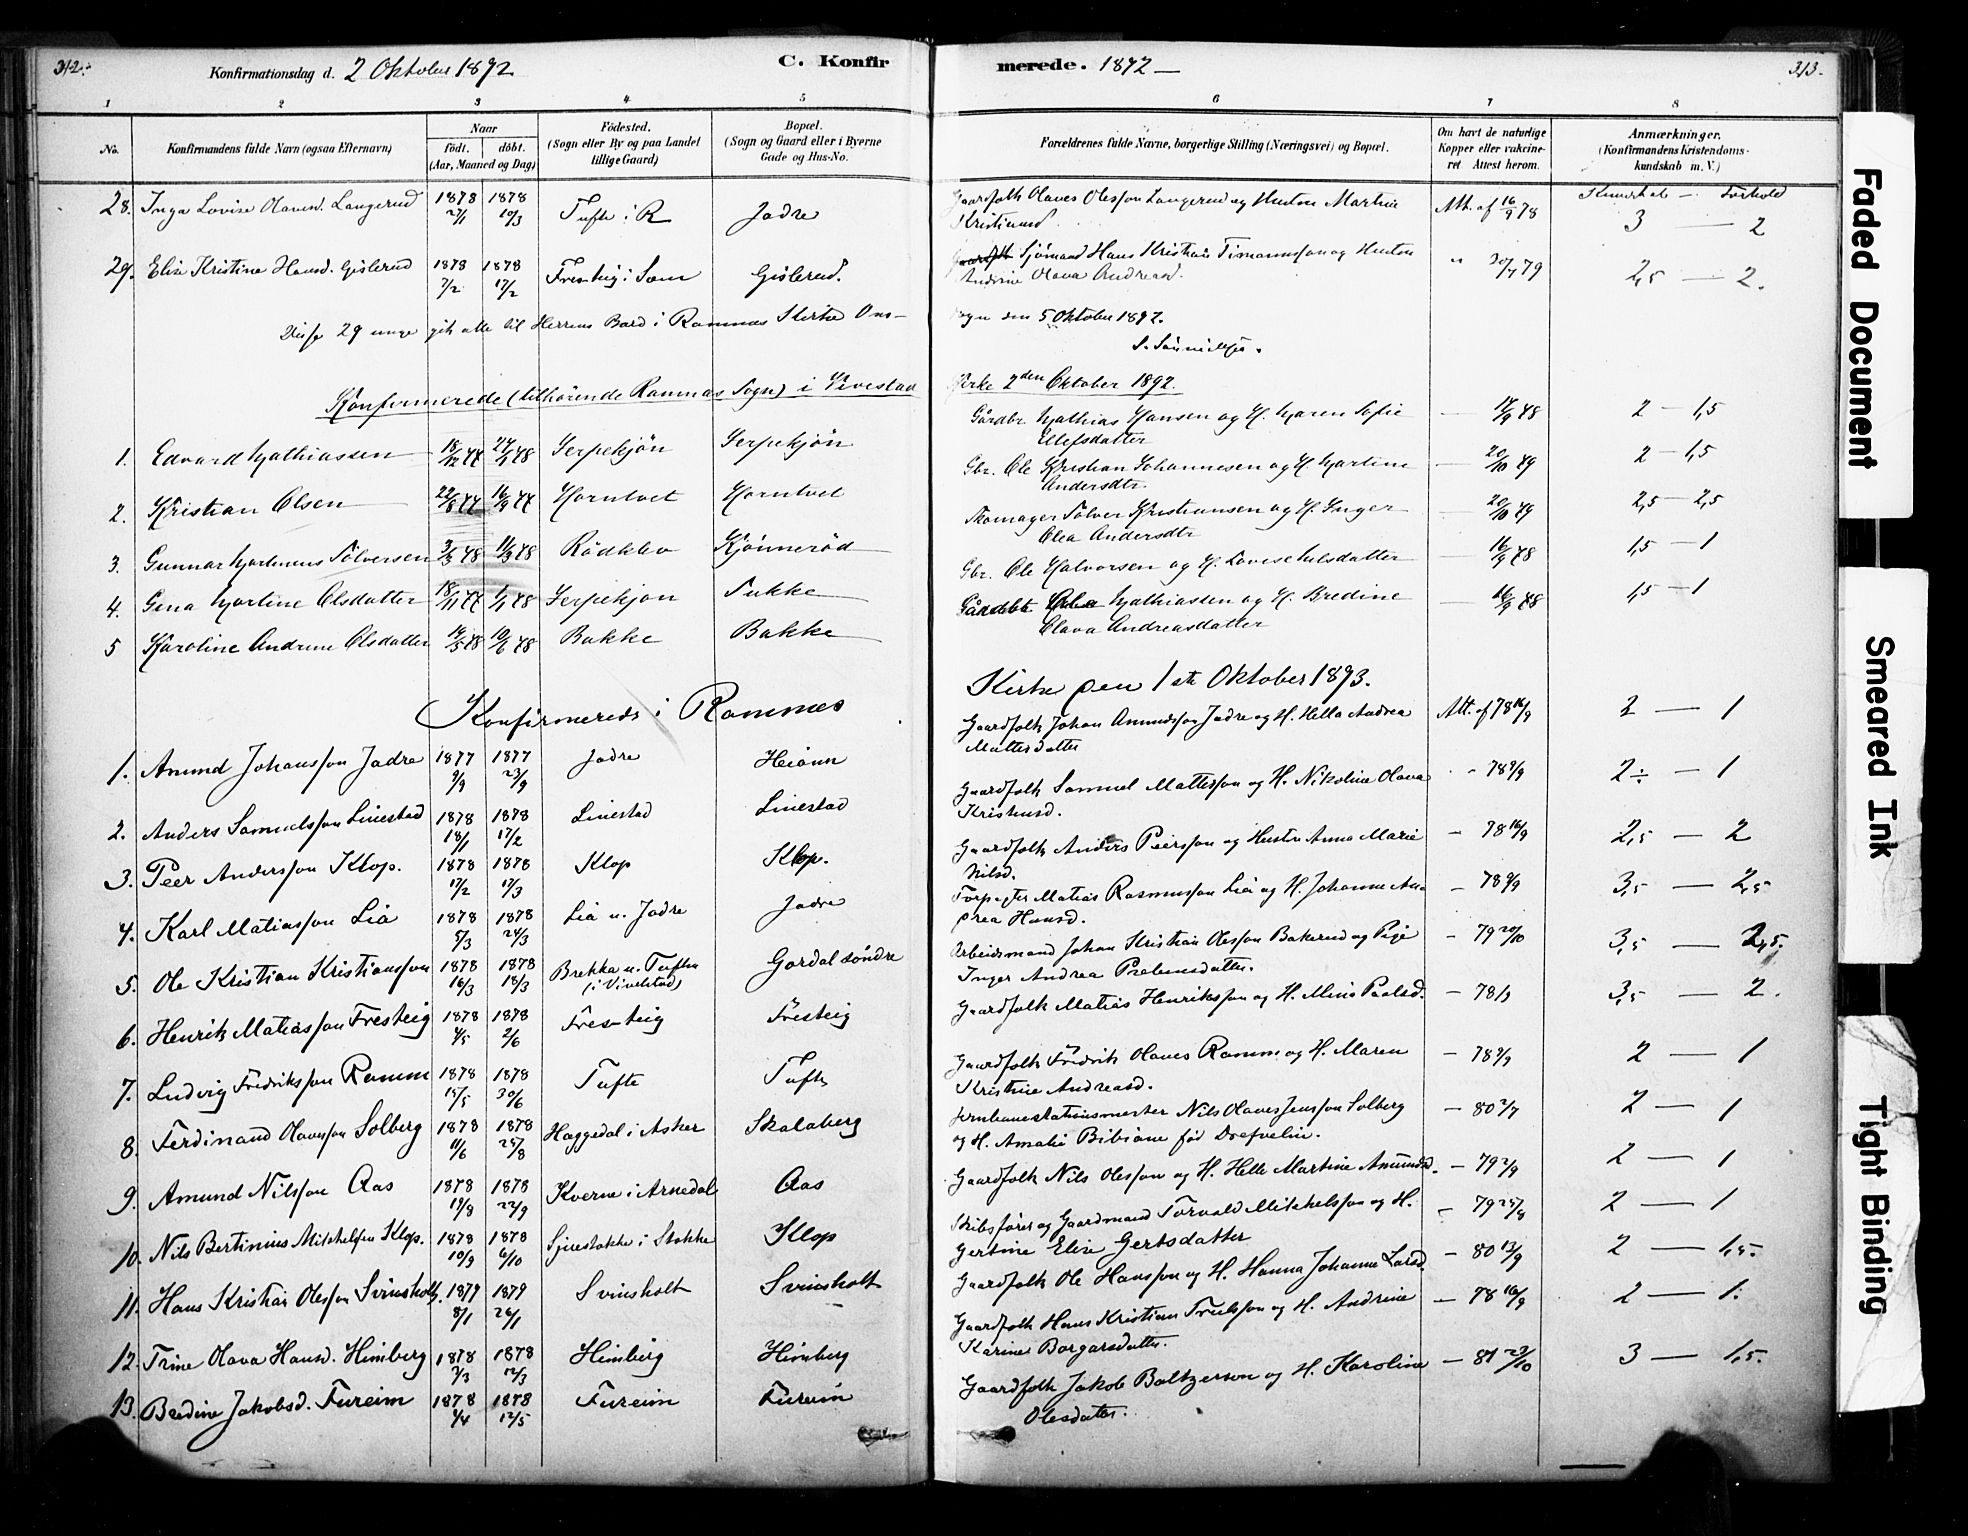 312.
Konfirmationsdag d. 2 Oktober 1892.
C. Konfir
merede. 1892 —
313.
1 2 3 4 5 6 7 8
No.
Konfirmandens fulde Navn (ogsaa Efternavn)
Naar
født. døbt.
(Aar, Maaned og Dag)
Fødested.
(Sogn eller By og paa Landet
tillige Gaard)
Bopæl.
(Sogn og Gaard eller i Byerne
Gade og Hus-No.
Forældrenes fulde Navne, borgerlige Stilling (Næringsvei) og Bopæl.
Om havt de naturlige
Kopper eller vakcine-
ret Attest herom.
Anmærkninger,
(Konfirmandens Kristendoms-
kundskab m. V.)
Kundskab — Forhold
28. Inga Lovise Olavesd. Langerud 1878 27/1 1878 10/3 Tufte i R Jadre Gaardfolk Olaves Olesson Langerud og Hustru Martine Att. af 16/9 78 3 — 2
Kristiansd.
29. Elise Kristine Hansd. Gislerud 1878 7/2 1878 17/2 Fresteig i Sam Gislerud. Sjømand Hans Kristian Timannsson og Hustru " 30/7 79 2,5 — 2.
Andrine Olava Andreasd.
Disse 29 unge gik alle til Herrens Bord i Ramnæs Kirke Ons-
dagen den 5 Oktober 1892.
Konfirmerede (tilhørende Ramnæs Sogn) i Vivestad
Kirke 2den Oktober 1892.
1. Edvard Mathiassen 18/12 77 27/1 78 Serpekjøn Serpekjøn Gårdbr. Mathias Hansen og H. Maren Sofie — 17/9 78 2 — 1,5
Ellefsdatter
2. Kristian Olsen 22/8 77 16/9 77 Horntvet Horntvet Gbr. Ole Kristian Johannesen og H. Martine — 20/10 79 2 — 1,5
Andersdtr.
3. Gunnar Martinius Sølversen 3/3 78 11/3 78 Rødkløv Kjønnerød Skomager Sølver Kristiansen og H. Inger — 20/10 79 2,5 — 2,5
Olea Andersdtr
4. Gina Martine Olsdatter 18/11 77 1/1 78 Serpekjøn Sukke Gbr. Ole Halvorsen og H. Lovise Nilsdatter — 16/9 78 1,5 — 1
5 Karoline Andrine Olsdatter 14/5 78 10/6 78 Bakke Bakke Gårdbr. Ole Mathiassen og H. Bredine — 16/9 78 1,5 — 1
Olava Andreasdatter
Konfirmerede i Ramnes
Kirke den 1ste Oktober 1893.
1. Amund Johansson Jadre 1877 9/9 1877 23/9 Jadre Heiann Gaardfolk Johan Amundsson Jadre og H. Hella Andrea Att. af 78 16/9 2 — 1
Mattesdatter
2. Anders Samuelsson Linestad 1878 18/1 1878 17/2 Linestad Linestad Gaardfolk Samuel Mattesson og H. Nikoline Olava " 78 9/9 2 ÷ — 1
Kristensd.
3. Peer Andersson Klop. 1878 17/2 1878 17/3 Klop Klop. Gaardfolk Anders Peersson og Hustru Anna Marie — 78 16/9 2,5 — 2
Nilsd.
4. Karl Matiasson Lia 1878 5/3 1878 24/3 Lia u. Jadre Jadre Forpagter Matias Rasmusson Lia og H. Johanne An- — 78 9/9 3,5 — 2,5
drea Hansd.
5. Ole Kristian Kristiansson 1878 16/3 1878 18/3 Brekka u. Tufte (i Vivelstad) Gordal søndre Arbeidsmand Johan Kristian Olesson Bakerud og Pige — 79 20/10 3,5 — 2,5.
Inger Andrea Prebensdatter.
6. Henrik Matiasson Fresteig 1878 4/5 1878 2/6 Fresteig Fresteig Gaardfolk Matias Henriksson og H. Mina Paalsd. — 78 3,5 — 2.
7. Ludvig Fredriksson Ramm 1878 15/5 1878 30/6 Tufte Tufte Gaardfolk Fredrik Olaves Ramm og H. Maren — 78 9/9 2 — 1
Kristine Andreasd.
8. Ferdinand Olavsson Solberg 1878 11/6 1878 25/8 Haggedal i Asker Skalaberg Jernbanestationsmester Nils Olaves Jensson Solberg — 80 2/7 2 — 1
og H. Amalie Bibiane fød Drefvelin.
9. Amund Nilsson Aas 1878 19/8 1878 22/9 Kverne i Arnedal Aas Gaardfolk Nils Olesson og H. Helle Martine Amundsd. — 79 2/9 2 — 1
10. Nils Bertinius Mikkelssen Klop. 1878 10/9 1878 6/10 Sjuestokke i Stokke Klop Skibsfører og Gaardmand Torvald Mikkelsson og H. — 79 25/8 2 — 1
Gertine Elise Gertsdatter
11. Hans Kristian Olesson Svinsholt. 1879 8/1 1879 26/1 Svinsholt Svinsholt Gaardfolk Ole Hansson og H. Hanna Johanne Larsd. — 80 13/9 2 — 1,5.
12. Trine Olava Hansd. Himberg 1878 2/3 1878 12/3 Himberg Himberg Gaardfolk Hans Kristian Trulsson og H. Andrine — 78 16/9 2 — 1.
Karine Borgarsdatter.
13. Bredine Jakobsd. Fureim 1878 1/4 1878 12/5 Fureim Fureim Gaardfolk Jakob Baltzerson og H. Karoline — 81 23/10 3 — 1,5.
Olesdatter.
Faded Document
Smeared Ink
Tight Binding